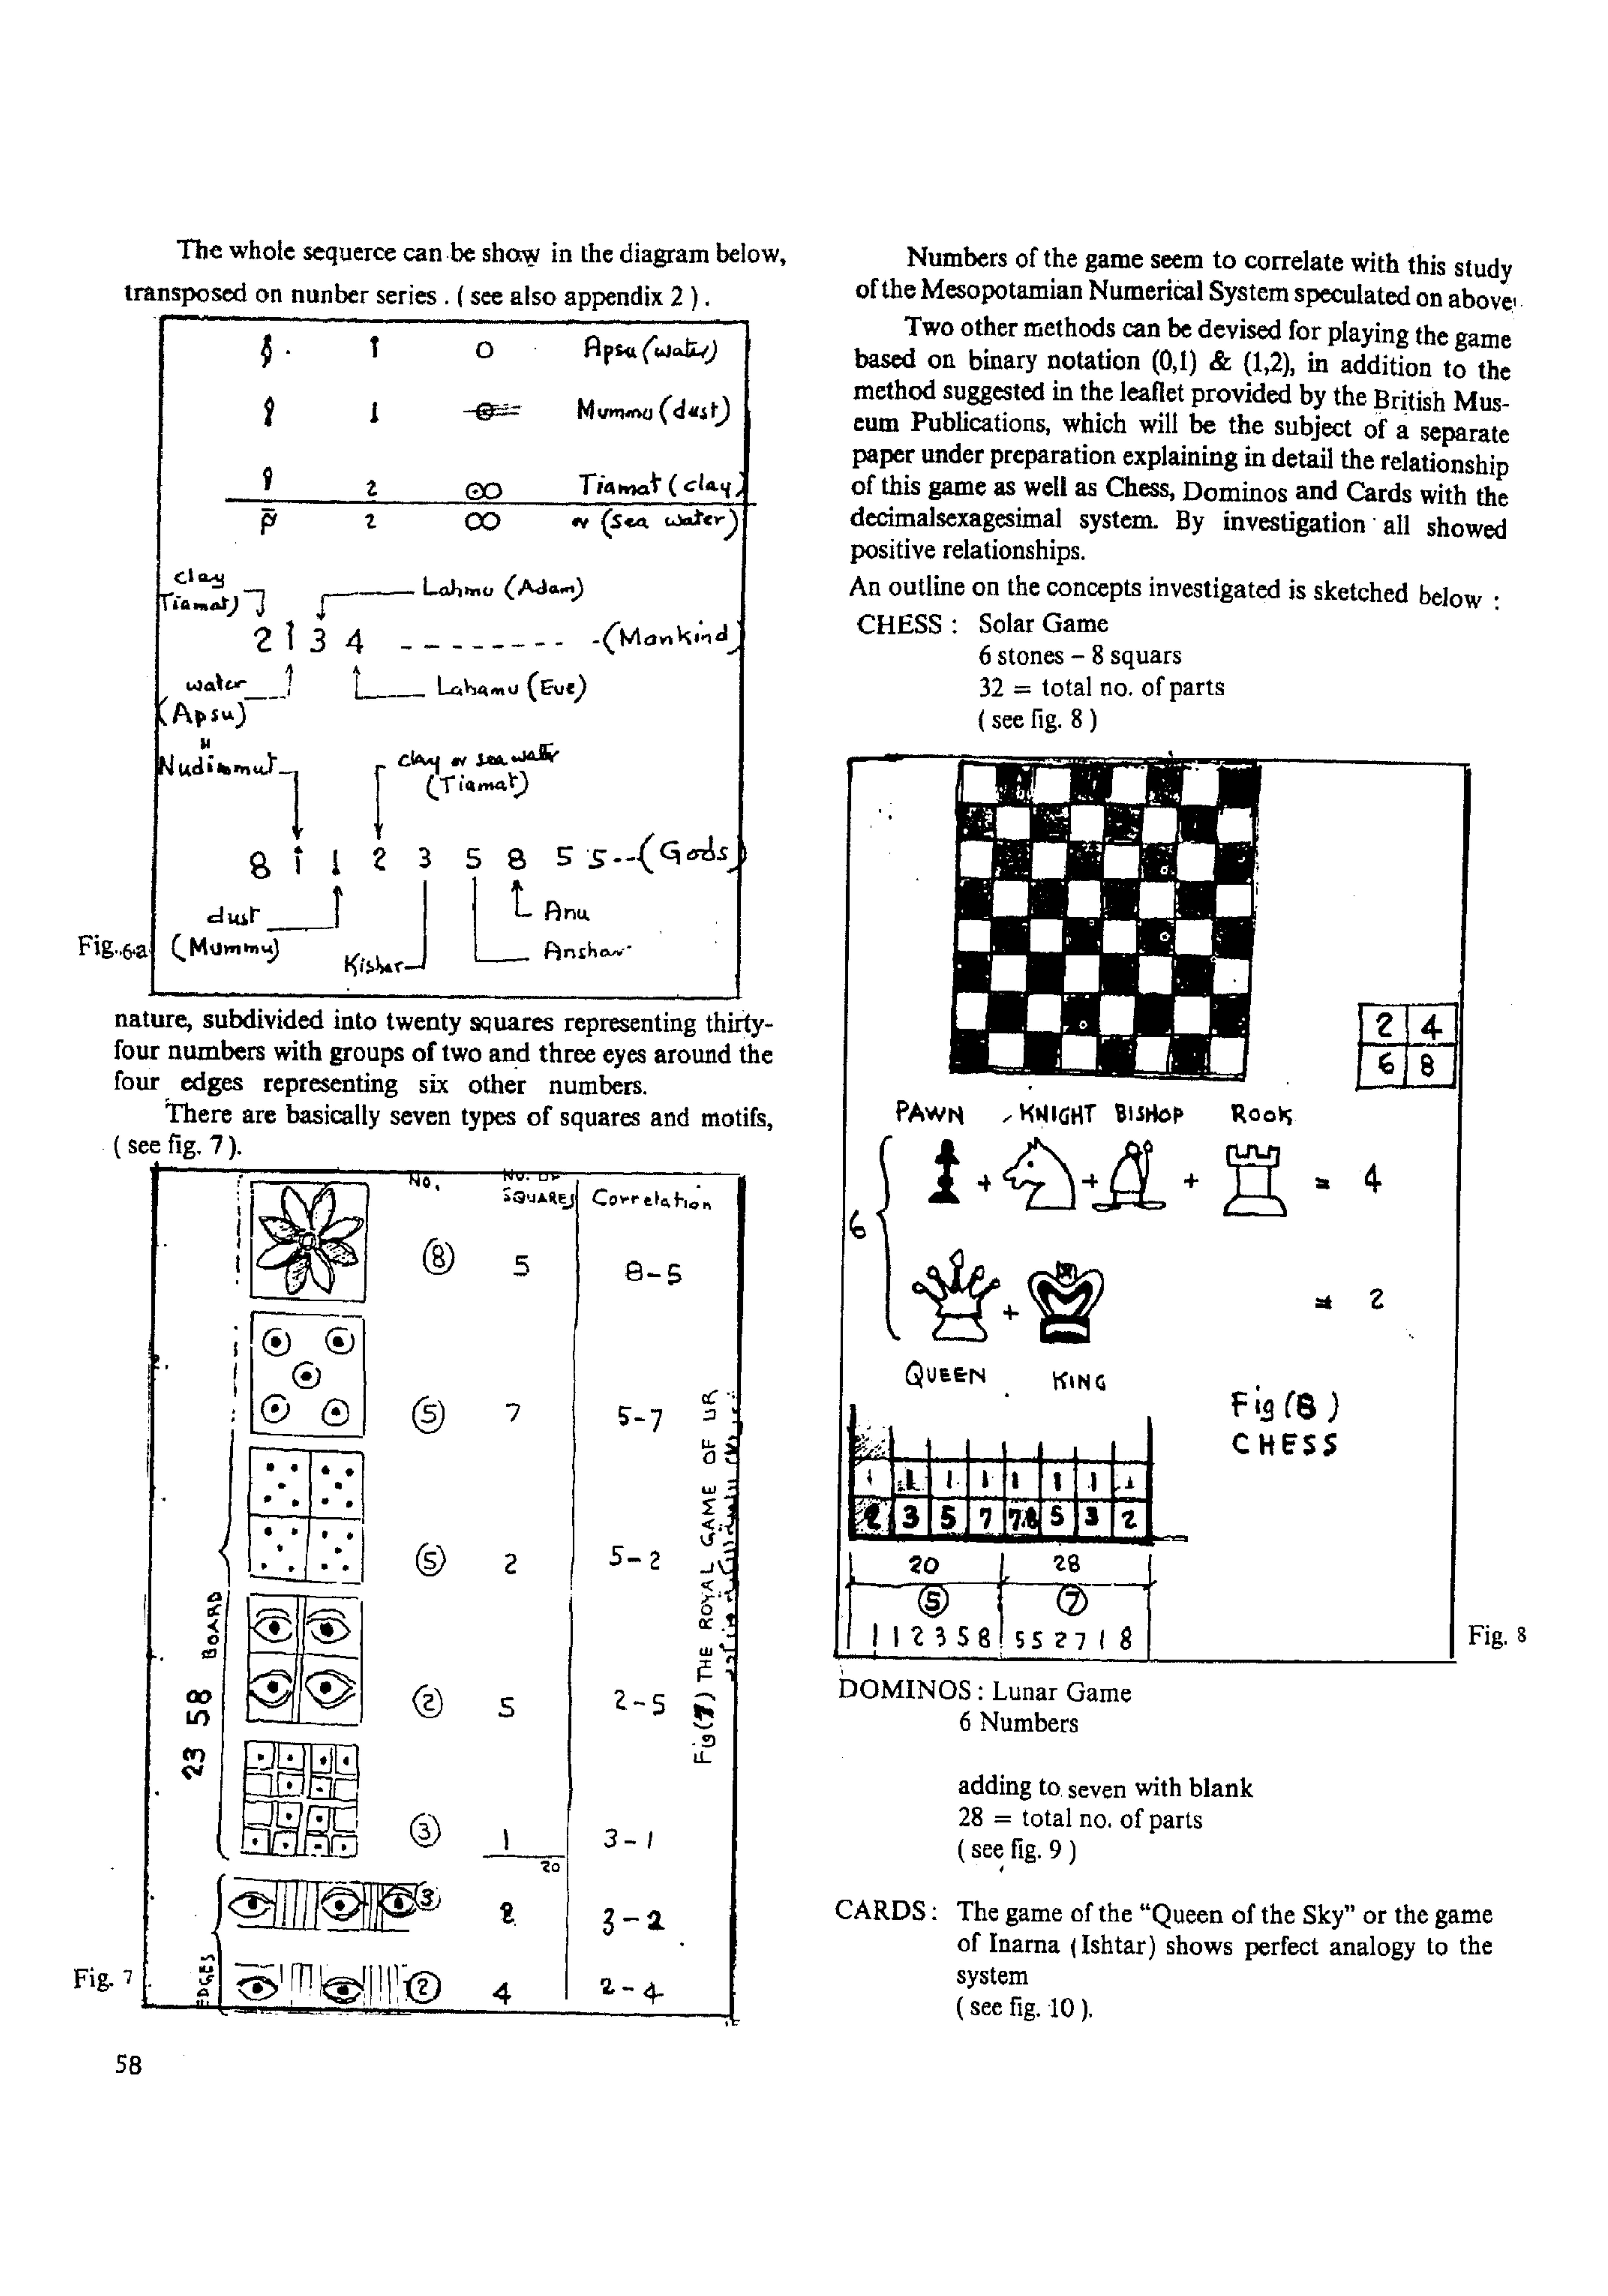 The whole sequerce can be show in the diagram below,
transposed on nunber series . ( see also appendix 2 ) .
1 0 Apsu (water)
1 Mummu (dust)
2 Tiamat (clay)
2 or (sea water)
clay
Tiamat)
Lahmu (Adam)
2 1 3 4 - - - - - - - - - (Mankind)
water
(Apsu)
Lahamu (Eve)
Nudimmut
clay or sea water
(Tiamat)
8 1 1 2 3 5 8 5 5 -- (Gods)
dust
(Mummu)
Anu
Anshar
Kishar
Fig. 6-a
nature, subdivided into twenty squares representing thirty-
four numbers with groups of two and three eyes around the
four edges representing six other numbers.
There are basically seven types of squares and motifs,
( see fig. 7 ).
No. NO. OF
SQUARES Correlation
8 5 8-5
5 7 5-7
5 2 5-2
2 5 2-5
3 1 3-1
20
3 2 3-2
2 4 2-4
23 58 BOARD
EDGES
Fig (7) THE ROYAL GAME OF UR
Fig. 7
58
Numbers of the game seem to correlate with this study
of the Mesopotamian Numerical System speculated on above
Two other methods can be devised for playing the game
based on binary notation (0,1) & (1,2), in addition to the
method suggested in the leaflet provided by the British Mus-
eum Publications, which will be the subject of a separate
paper under preparation explaining in detail the relationship
of this game as well as Chess, Dominos and Cards with the
decimalsexagesimal system. By investigation all showed
positive relationships.
An outline on the concepts investigated is sketched below :
CHESS : Solar Game
6 stones – 8 squars
32 = total no. of parts
( see fig. 8 )
2 4
6 8
PAWN KNIGHT BISHOP ROOK
+ + + = 4
6
+ = 2
QUEEN KING
Fig (8)
CHESS
1 1 1 1 1 1 1 1
2 3 5 7 7.8 5 3 2
20 28
5 7
1 1 2 3 5 8 5 5 2 7 1 8
Fig. 8
DOMINOS : Lunar Game
6 Numbers
adding to seven with blank
28 = total no. of parts
( see fig. 9 )
CARDS : The game of the “Queen of the Sky” or the game
of Inarna (Ishtar) shows perfect analogy to the
system
( see fig. 10 ).